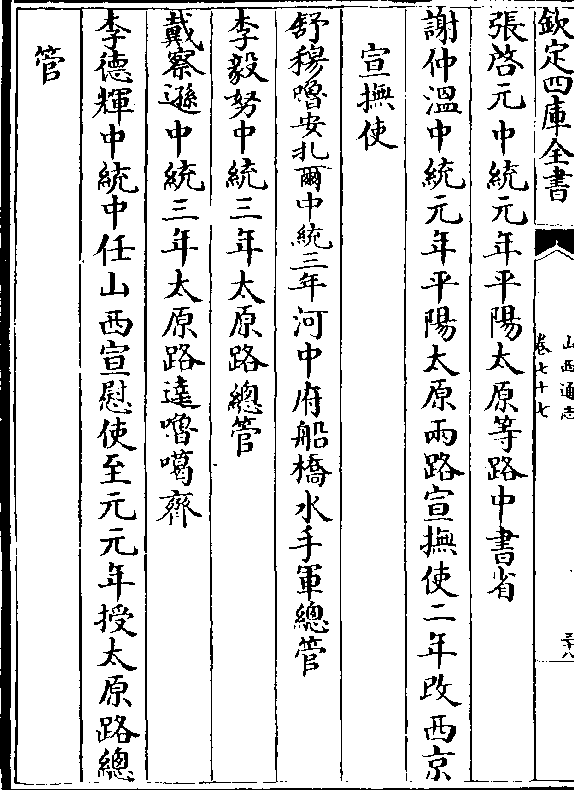 欽定四庫全書
山西通志
卷七十七
三十八
張啓元中統元年平陽太原等路中書省
謝仲溫中統元年平陽太原兩路宣撫使二年改西京
宣撫使
舒穆嚕安扎爾中統三年河中府船橋水手軍總管
李毅努中統三年太原路總管
戴察遜中統三年太原路達嚕噶齊
李德輝中統中任山西宣慰使至元元年授太原路總
管